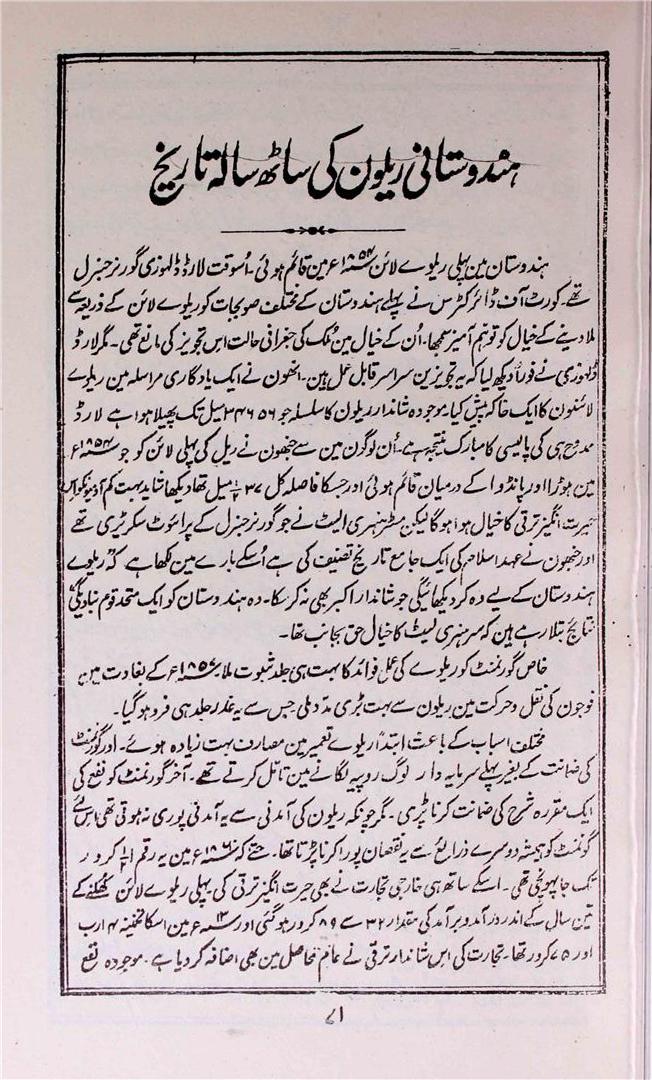 ہندوستانی ریلون کی ساٹھ سالہ تاریخ
ہندوستان مین پہلی ریلوے لائن ۱۸۵۴ء مین قائم ہوئی۔ اُسوقت لارڈ ڈلہوزی گورنر جنرل
تھے۔ کورٹ آف ڈائرکٹرس نے پہلے ہندوستان کے مختلف صوبجات کو ریلوے لائن کے ذریعہ سے
ملا دینے کے خیال کو توہم آمیز سمجھا۔ اُن کے خیال مین ملک کی جغرافی حالت اس تجویز کی مانع تھی۔ مگر لارڈ
ڈلہوزی نے فوراً دیکھ لیا کہ یہ تجویزین سراسر قابل عمل ہین۔ انھون نے ایک یادگاری مراسلہ مین ریلوے
لائنون کا ایک خاکہ پیش کیا۔ موجودہ شاندار ریلون کا سلسلہ جو ۳۴۶۵۶ میل تک پھیلا ہوا ہے لارڈ
ممدوح ہی کی پالیسی کا مبارک نتیجہ ہے۔ اُن لوگون مین سے جنھون نے ریل کی پہلی لائن کو جو ۱۸۵۴ء
مین ہوڑا اور پانڈوا کے درمیان قائم ہوئی اور جسکا فاصلہ کل ۳۷ ½ میل تھا دیکھا شاید بہت کم آدمیونکو اس
حیرت انگیز ترقی کا خیال ہوا ہوگا لیکن مسٹر ہنری الیٹ نے جو گورنر جنرل کے پرائوٹ سکرٹیری تھے
اور جنھون نے عہد اسلام کی ایک جامع تاریخ تصنیف کی ہے اُسکے بارے مین لکھا ہے کہ "ریلوے
ہندوستان کے لیے وہ کر دیکھائیگی جو شاندار اکبر بھی نہ کر سکا۔ وہ ہندوستان کو ایک متحد قوم بنا دیگی"
نتائج بتلا رہے ہین کہ سر ہنری لیٹ کا خیال حق بجانب تھا۔
خاص گورنمنٹ کو ریلوے کی عملی فوائد کا بہت ہی جلد ثبوت ملا۔ ۱۸۵۷ء کے بغاوت مین
فوجون کی نقل و حرکت مین ریلون سے بہت بڑی مدد ملی جس سے یہ غدر جلد ہی فرو ہو گیا۔
مختلف اسباب کے باعث ابتداً ریلوے تعمیر مین مصارف بہت زیادہ ہوئے۔ اور گورنمنٹ
کی ضمانت کے بغیر پہلے سرمایہ دار لوگ روپیہ لگانے مین تامل کرتے تھے۔ آخر گورنمنٹ کو نفع کی
ایک مقررہ شرح کی ضمانت کرنا پڑی۔ مگر چونکہ ریلون کی آمدنی سے یہ آمدنی پوری نہ ہوتی تھی اس لئے
گونمنٹ کو ہمیشہ دوسرے ذرایع سے یہ نقصان پورا کرنا پڑتا تھا۔ حتے کہ مین یہ رقم کرور
تک جا پہونچی تھی۔ اسکے ساتھ ہی خارجی تجارت نے بھی حیرت انگیز ترقی کی پہلی ریلوے لائن کھلنے کے
تین سال کے اندر درآمد و برآمد کی مقدار ۳۲ سے ۸۹ کرور ہو گئی اور ۱۳ء مین اسکا تخمینہ ۴ ارب
اور ۷۵ کرور تھا۔ تجارت کی اس شاندار ترقی نے عام محاصل مین بھی اضافہ کر دیا ہے۔ موجودہ نفع
۷۱